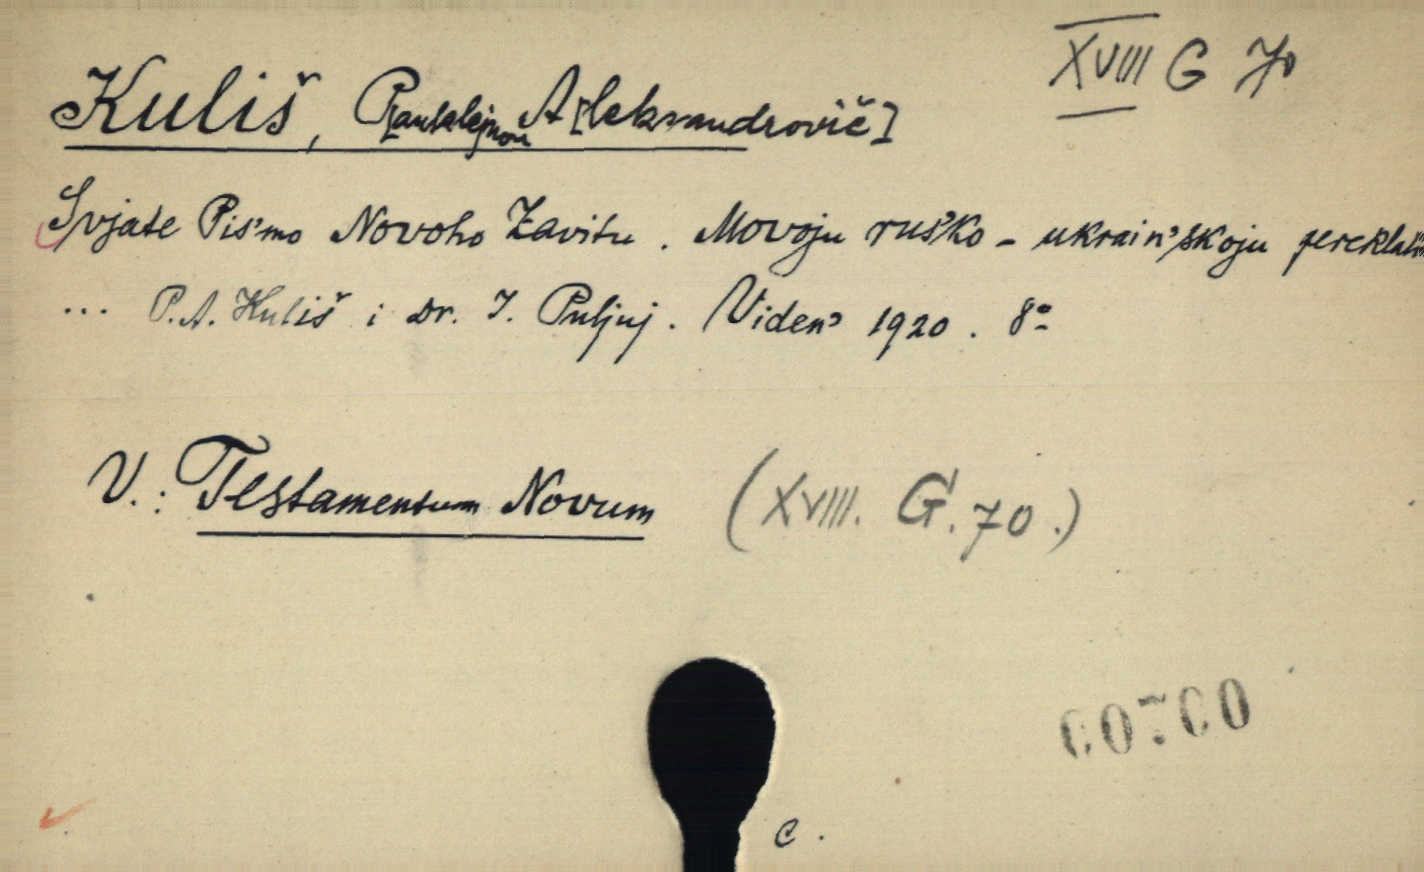 XVIII G 70
Kuliš, P[antelejmon] A[leksandrovič]
Svjate Pis'mo Novoho Zavitu. Movoju rus'ko-ukrain'skoju pereklali
... P.A. Kuliš i Dr. I. Puljuj. Viden' 1920. 8°
V.: Testamentum Novum (XVIII. G. 70.)
00700
C.